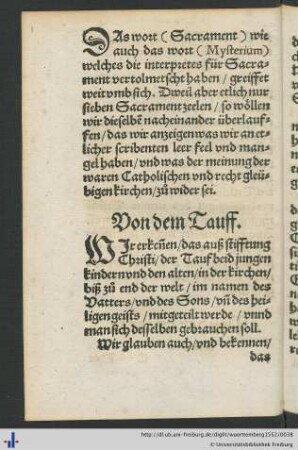 DAs wort ( Sacrament ) wie
auch das wort ( Mysterium )
welches die interpretes für Sacra-
ment vertolmetscht haben / greiffet
weit vmb sich. Dweil aber etlich nur
sieben Sacrament zeelen / so wöllen
wir dieselbē nacheinander überlauf-
fen / das wir anzeigen was wir an et-
licher scribenten leer feel vnd man-
gel haben / vnd was der meinung der
waren Catholischen vnd recht gleü-
bigen kirchen / zů wider sei.
Von dem Tauff.
WIr erkēnen / das auß stifftung
Christi / der Tauf beid jungen
kindern vnd den alten / in der kirchen /
biß zů end der welt / im namen des
Vatters / vnd des Sons / vñ des hei-
ligen geists / mitgeteilt werde / vnnd
man sich desselben gebrauchen soll.
Wir glauben auch / vnd bekennen /
das
http://dl.ub.uni-freiburg.de/diglit/wuerttemberg1552/0038
© Universitätsbibliothek Freiburg